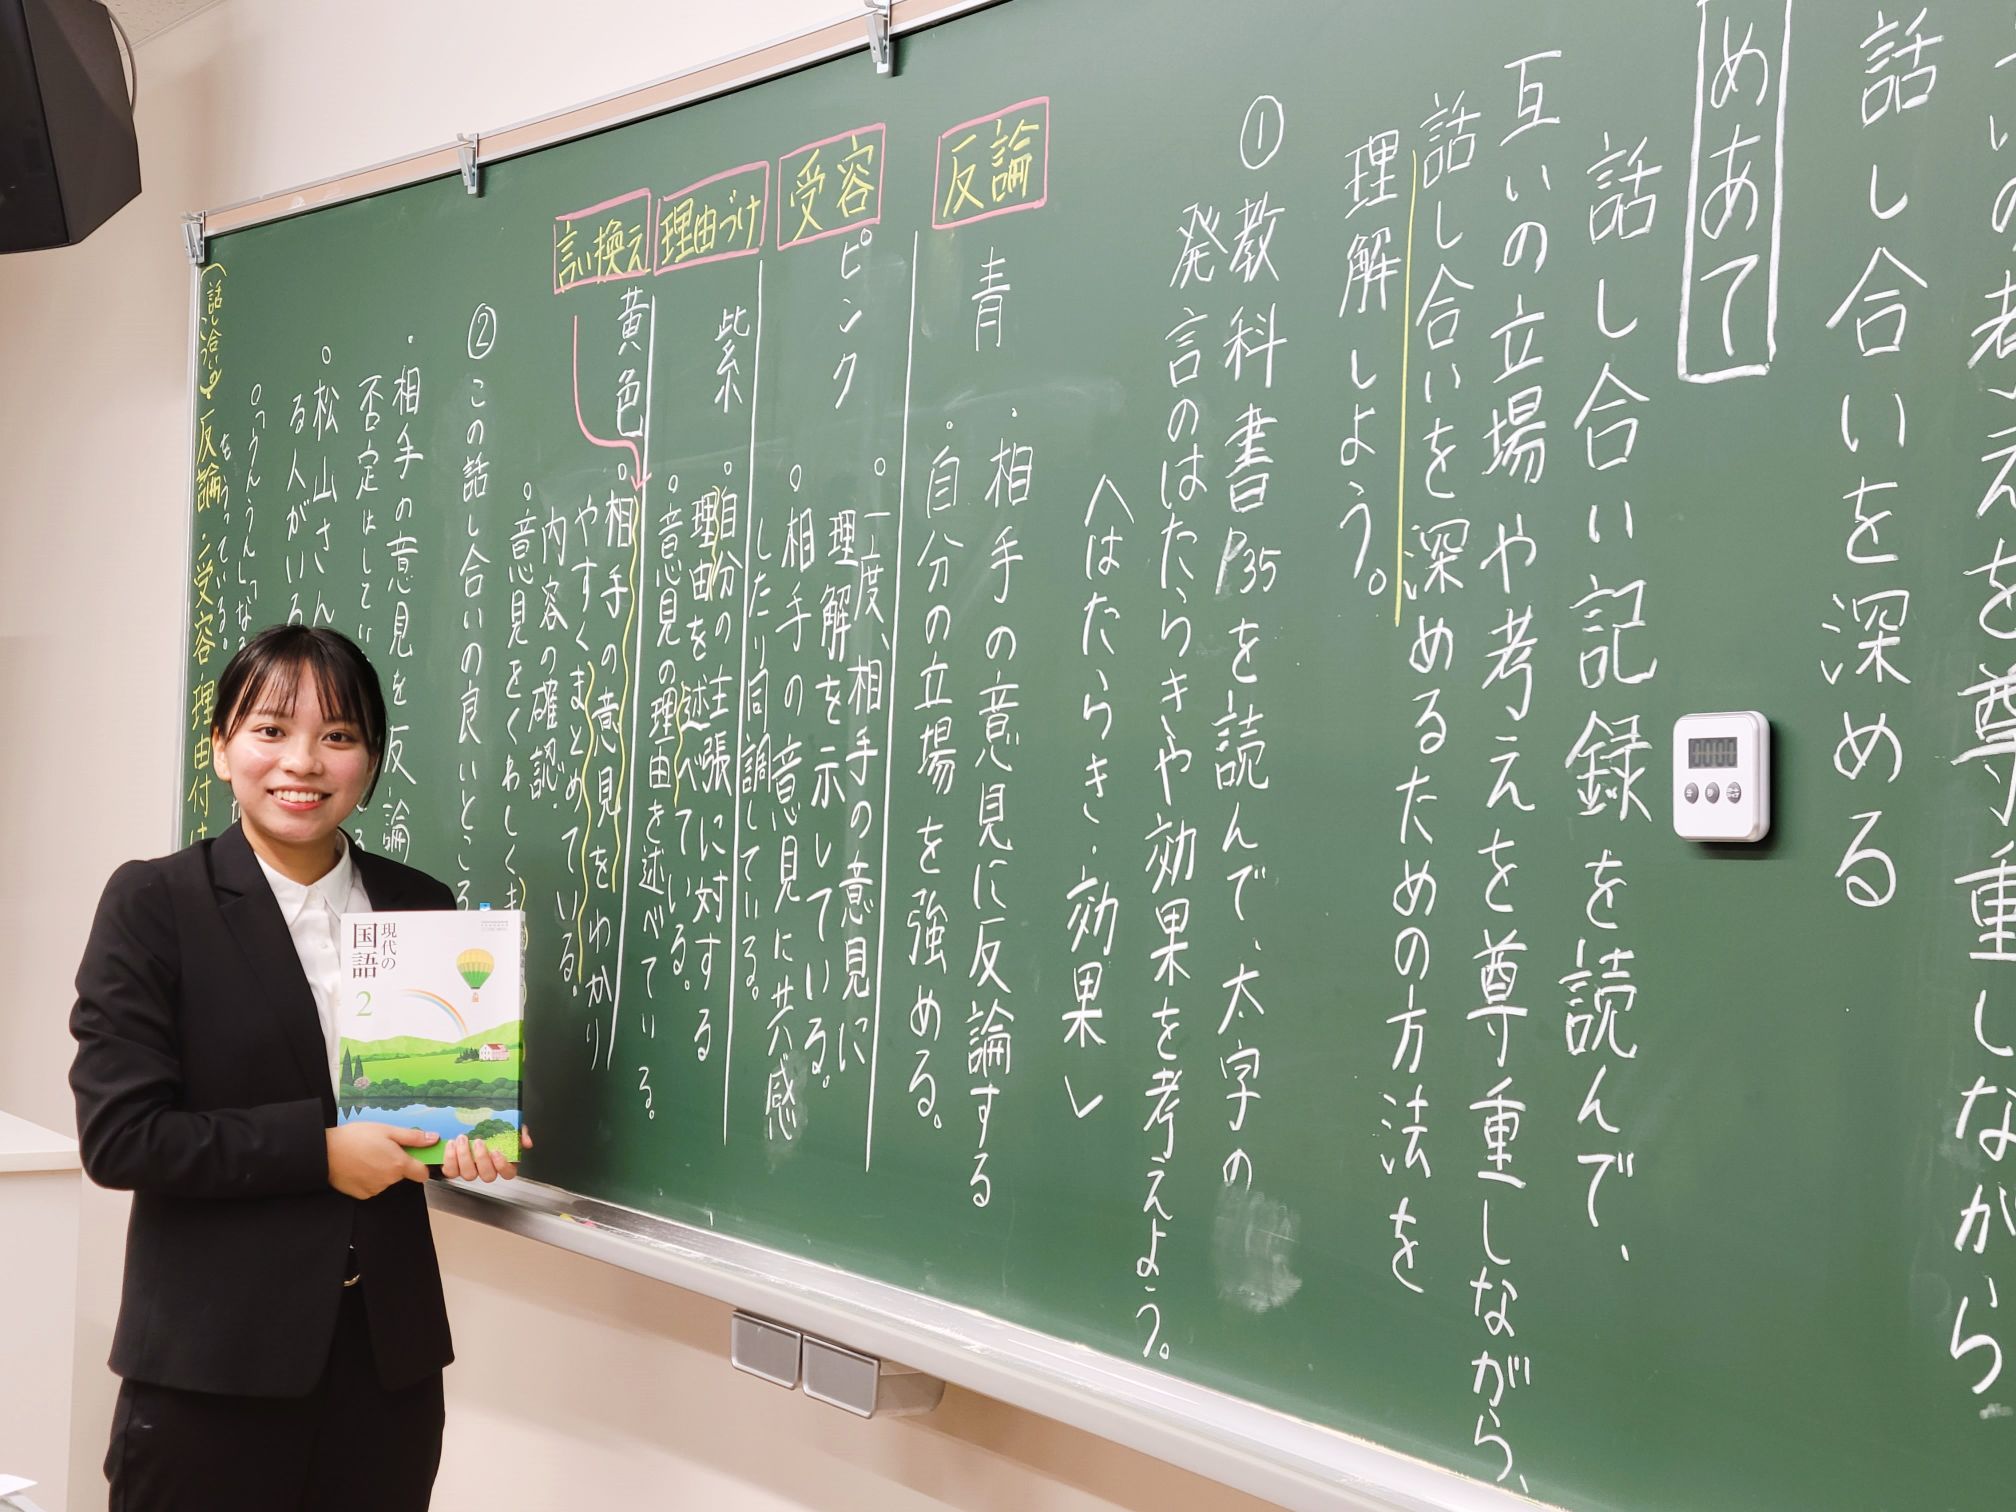 の考えを尊重しながら
話し合いを深める
めあて
話し合い記録を読んで、
互いの立場や考えを尊重しながら、
話し合いを深めるための方法を
理解しよう。
①教科書P35を読んで、太字の
発言のはたらきや効果を考えよう。
〈はたらき・効果〉
反論
青
・相手の意見に反論する
・自分の立場を強める。
受容
ピンク
・一度、相手の意見に
理解を示している。
・相手の意見に共感
したり同調している。
理由づけ
紫
・自分の主張に対する
理由を述べている。
・意見の理由を述べている。
言い換え
黄色
・相手の意見をわかり
やすくまとめている。
内容の確認。
・意見をくわしく
②この話し合いの良いところ
・相手の意見を反論
否定はしてい
・松山さん
る人がいる
反論・受容・理由付け
現代の
国語
2